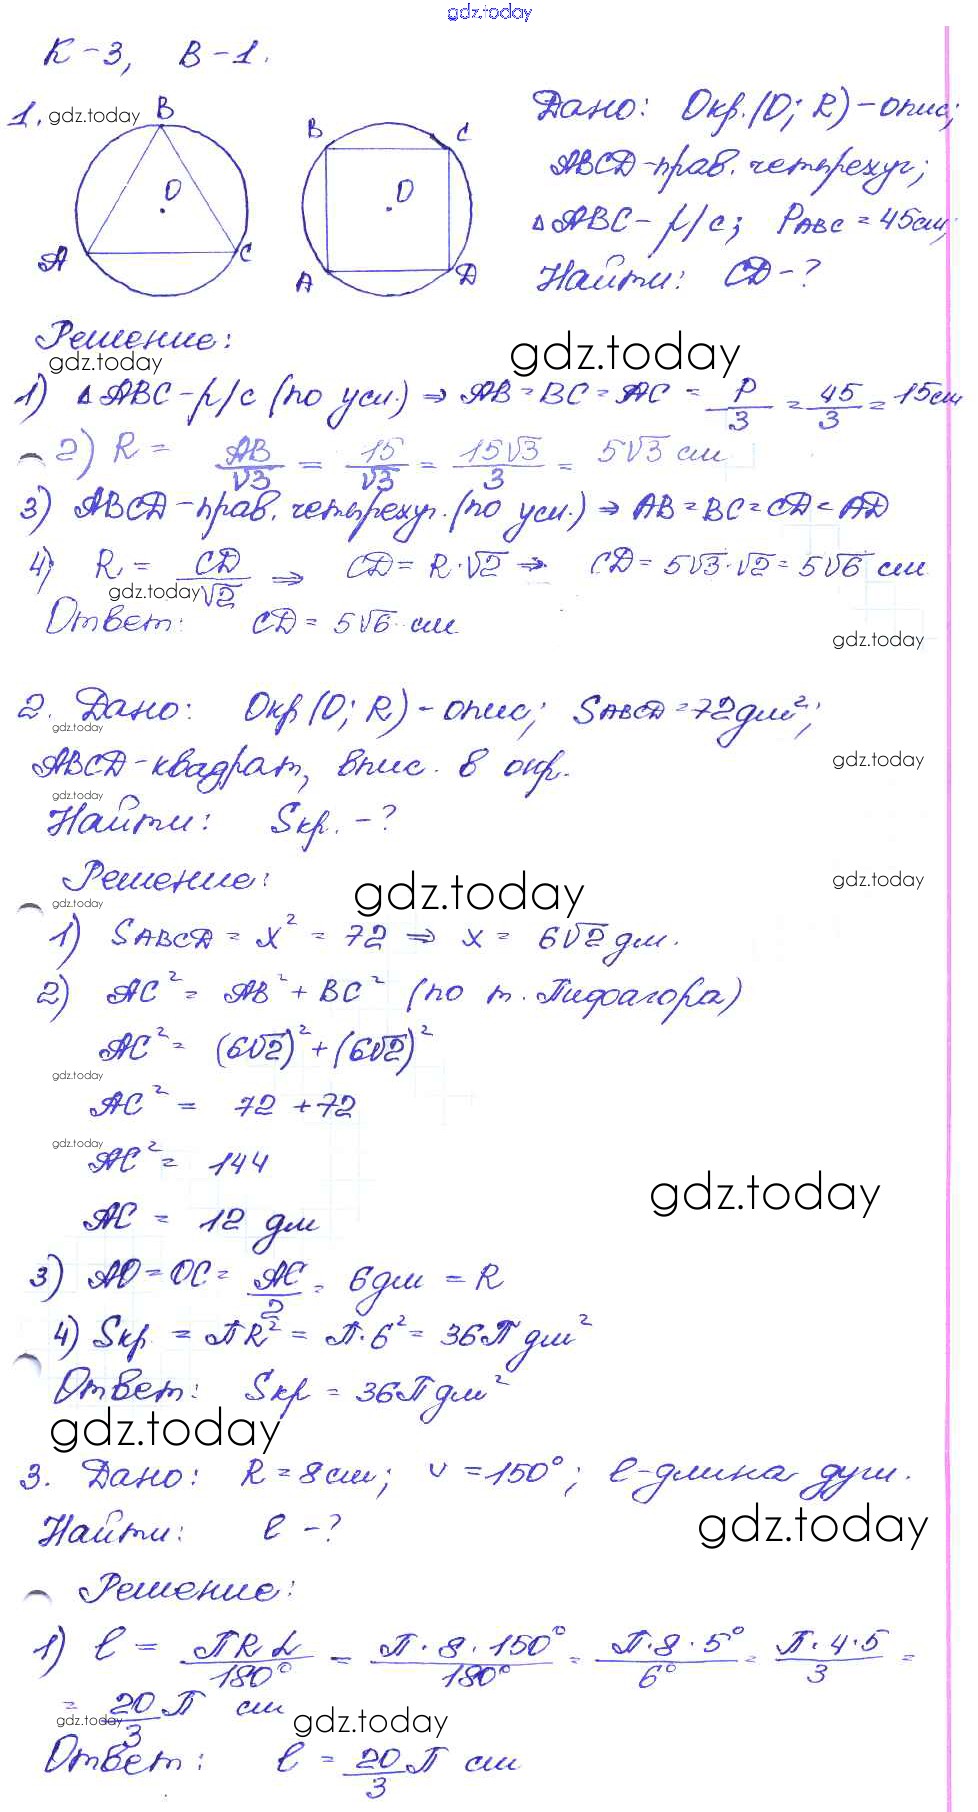 gdz.today
К-3, В-1.
1. gdz.today
B
O
A
C
B
C
O
A
D
Дано: Окр.(O; R) - опис;
ABCD - прав. четырехуг;
△ABC - р/с; P_ABC = 45см;
Найти: CD - ?
Решение:
gdz.today
gdz.today
1) △ABC - р/с (по усл.) ⇒ AB = BC = AC = P/3 = 45/3 = 15см
2) R = AB/√3 = 15/√3 = 15√3/3 = 5√3 см
3) ABCD - прав. четырехуг. (по усл.) ⇒ AB = BC = CD = AD
4) R = CD/√2 ⇒ CD = R·√2 ⇒ CD = 5√3·√2 = 5√6 см
gdz.today
Ответ: CD = 5√6 см
gdz.today
2. Дано: Окр(O; R) - опис; S_ABCD = 72дм²;
gdz.today
ABCD - квадрат, впис. в окр.
gdz.today
gdz.today
Найти: Sкр. - ?
Решение:
gdz.today
gdz.today
gdz.today
1) S_ABCD = x² = 72 ⇒ x = 6√2 дм.
2) AC² = AB² + BC² (по т. Пифагора)
AC² = (6√2)² + (6√2)²
gdz.today
AC² = 72 + 72
gdz.today
AC² = 144
gdz.today
AC = 12 дм
3) AO = OC = AC/2 = 6дм = R
4) Sкр = ПR² = П·6² = 36П дм²
Ответ: Sкр = 36П дм²
gdz.today
3. Дано: R = 8см; ∨ = 150°; l - длина дуги.
Найти: l - ?
gdz.today
Решение:
1) l = ПRL/180° = П·8·150°/180° = П·8·5°/6° = П·4·5/3 =
= 20/3 П см
gdz.today
gdz.today
Ответ: l = 20/3 П см